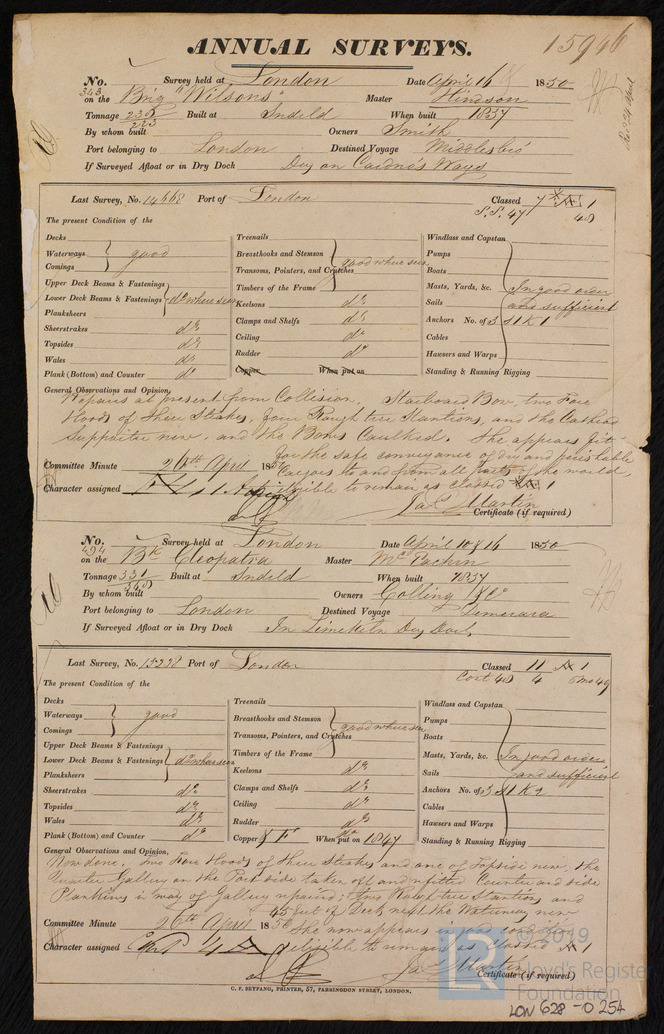 ANNUAL SURVEYS.
15946
No. 343 Survey held at London Date April 16 1850
on the Brig "Wilsons" Master Hindson
Tonnage 223 Built at Sndeld When built 1837
By whom built Owners Smith
Port belonging to London Destined Voyage Middlesbro'
If Surveyed Afloat or in Dry Dock Dry on
Last Survey, No. 14668 Port of London Classed A 1
S.S. 47 48
The present Condition of the
Decks
Waterways good
Comings
Upper Deck Beams & Fastenings
Lower Deck Beams & Fastenings do where seen
Planksheers
Sheerstrakes do
Topsides do
Wales do
Plank (Bottom) and Counter do
Treenails
Breasthooks and Stemson good where seen
Transoms, Pointers, and Crutches
Timbers of the Frame
Keelsons do
Clamps and Shelfs do
Ceiling do
Rudder do
Copper When put on
Windlass and Capstan
Pumps
Boats
Masts, Yards, &c. In good order
Sails and sufficient
Anchors No. of 3 S 1 K 1
Cables
Hawsers and Warps
Standing & Running Rigging
General Observations and Opinion,
Repairs at present from Collision, Starboard Bow, two Fore
Hoods of three Strakes, four Rough tree Stantions, and the Cathead
Supporter new, and the Bows Caulked. She appears fit
for the safe conveyance of dry and perishable
Committee Minute 26th April 1850 Cargoes to and from all parts of the world,
Character assigned eligible to remain as classed A 1
Jas Martin
Certificate (if required)
No. 494 Survey held at London Date April 10 & 16 1850
on the Bk Cleopatra Master
Tonnage 331 Built at Sndeld When built 1837
By whom built Owners Colling & Co
Port belonging to London Destined Voyage Demerara
If Surveyed Afloat or in Dry Dock In Limekiln Dry Dock
Last Survey, No. 15298 Port of London Classed 11 A 1
Cont 48 4
The present Condition of the
Decks
Waterways good
Comings
Upper Deck Beams & Fastenings
Lower Deck Beams & Fastenings do where seen
Planksheers
Sheerstrakes do
Topsides do
Wales do
Plank (Bottom) and Counter do
Treenails
Breasthooks and Stemson good where seen
Transoms, Pointers, and Crutches
Timbers of the Frame
Keelsons do
Clamps and Shelfs do
Ceiling do
Rudder do
Copper When put on 1847
Windlass and Capstan
Pumps
Boats
Masts, Yards, &c. In good order
Sails and sufficient
Anchors No. of 3 S 1 K 2
Cables
Hawsers and Warps
Standing & Running Rigging
General Observations and Opinion,
Now done. Two Fore Hoods of three Strakes and one of Topside new, the
Quarter Gallery on the Port side taken off and refitted, Counter and side
Planking in way of Gallery repaired; two Rough tree Stantions and
45 feet of Deck next the Waterway new
Committee Minute 26th April 1850 She now appears in good condition
Character assigned eligible to remain as classed A 1
Jas Martin
Certificate (if required)
C. F. SEYFANG, PRINTER, 57, FARRINGDON STREET, LONDON.
© 2019
Lloyd's Register
Foundation
LON 628-0254